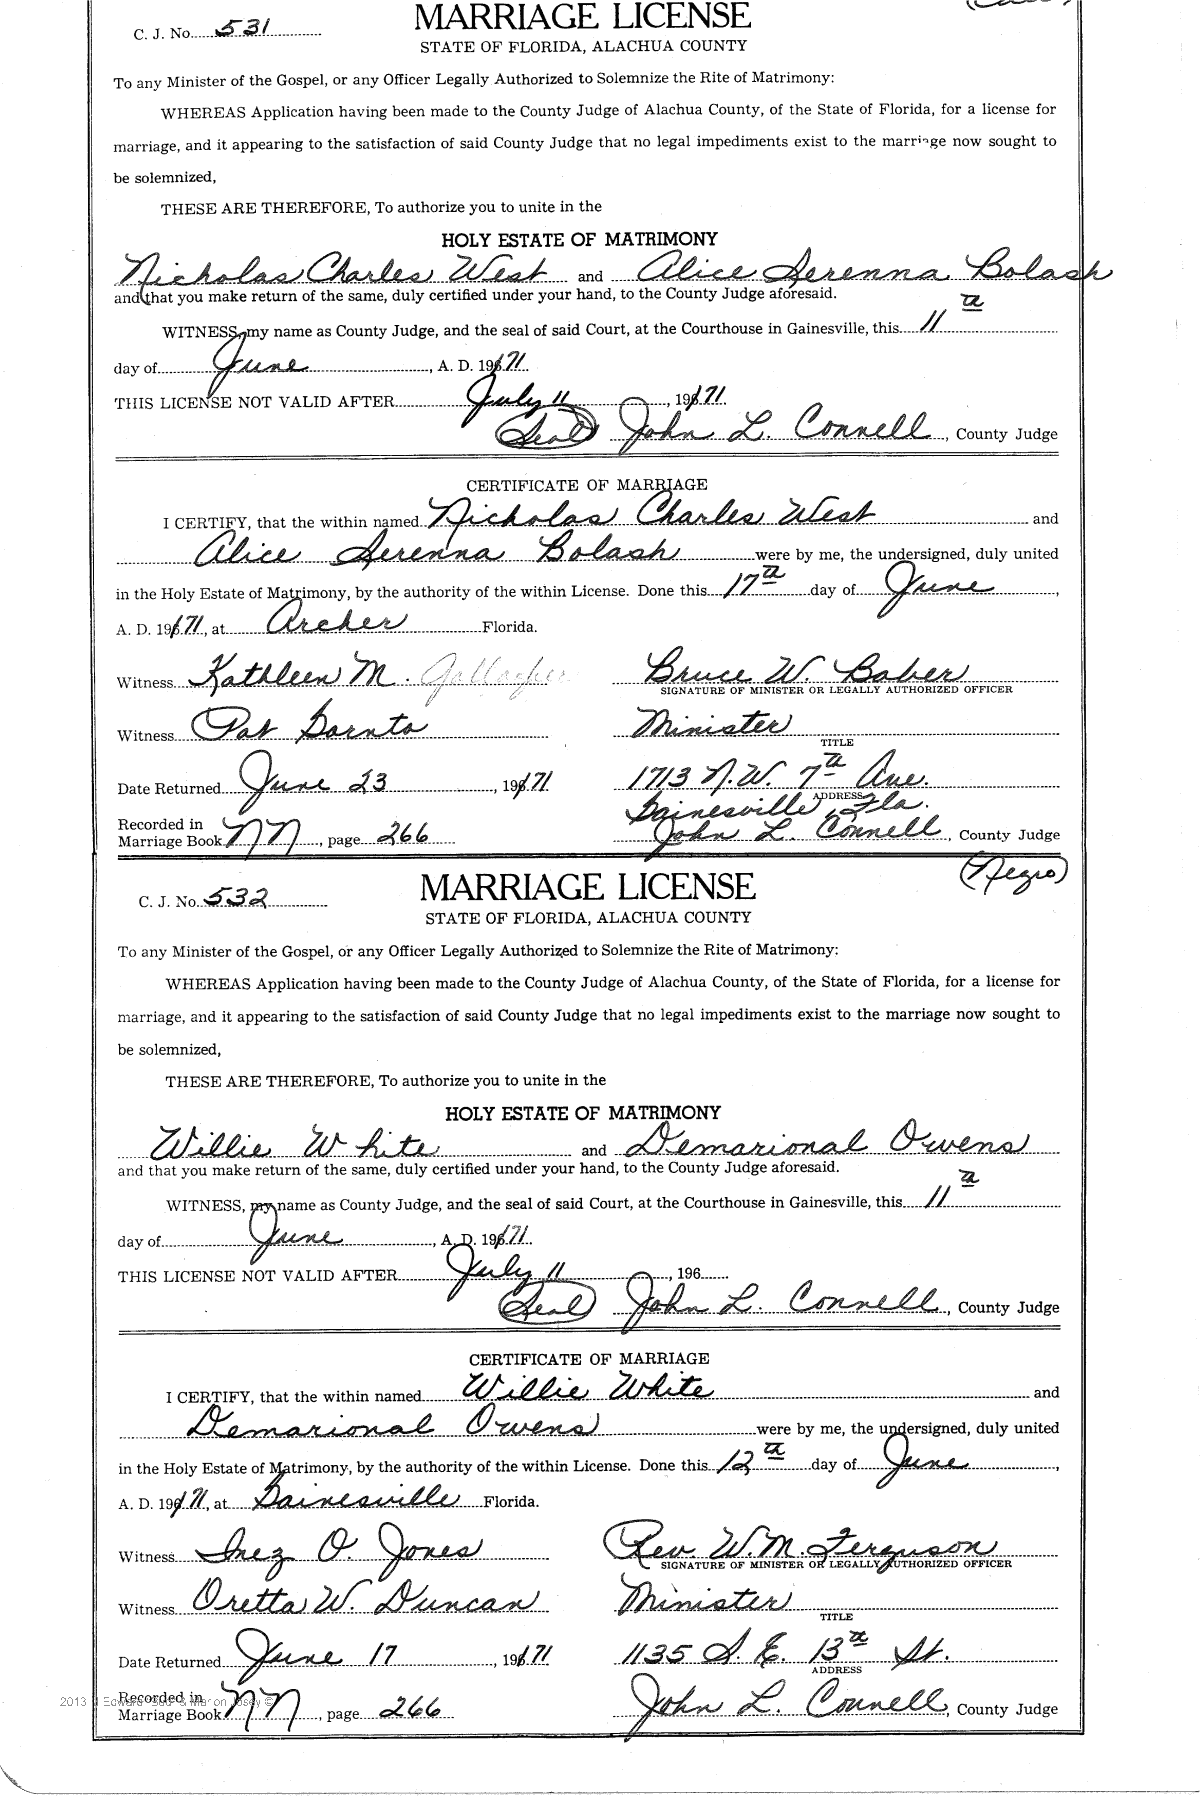 C. J. No. 531
MARRIAGE LICENSE
STATE OF FLORIDA, ALACHUA COUNTY
To any Minister of the Gospel, or any Officer Legally Authorized to Solemnize the Rite of Matrimony:
WHEREAS Application having been made to the County Judge of Alachua County, of the State of Florida, for a license for
marriage, and it appearing to the satisfaction of said County Judge that no legal impediments exist to the marriage now sought to
be solemnized,
THESE ARE THEREFORE, To authorize you to unite in the
HOLY ESTATE OF MATRIMONY
Nicholas Charles West and Alice Serenna Bolash
and that you make return of the same, duly certified under your hand, to the County Judge aforesaid.
WITNESS, my name as County Judge, and the seal of said Court, at the Courthouse in Gainesville, this 11th
day of June, A. D. 1971.
THIS LICENSE NOT VALID AFTER July 11, 1971.
(Seal) John L. Connell, County Judge
CERTIFICATE OF MARRIAGE
I CERTIFY, that the within named Nicholas Charles West and
Alice Serenna Bolash were by me, the undersigned, duly united
in the Holy Estate of Matrimony, by the authority of the within License. Done this 17th day of June,
A. D. 1971, at Archer Florida.
Witness Kathleen M. Gallagher Bruce W. Baber
SIGNATURE OF MINISTER OR LEGALLY AUTHORIZED OFFICER
Witness Pat Dornto Minister
TITLE
Date Returned June 23, 1971 1713 N.W. 7th Ave.
ADDRESS
Gainesville, Fla.
Recorded in
Marriage Book NN, page 266 John L. Connell, County Judge
(Negro)
C. J. No. 532
MARRIAGE LICENSE
STATE OF FLORIDA, ALACHUA COUNTY
To any Minister of the Gospel, or any Officer Legally Authorized to Solemnize the Rite of Matrimony:
WHEREAS Application having been made to the County Judge of Alachua County, of the State of Florida, for a license for
marriage, and it appearing to the satisfaction of said County Judge that no legal impediments exist to the marriage now sought to
be solemnized,
THESE ARE THEREFORE, To authorize you to unite in the
HOLY ESTATE OF MATRIMONY
Willie White and Demarional Owens
and that you make return of the same, duly certified under your hand, to the County Judge aforesaid.
WITNESS, my name as County Judge, and the seal of said Court, at the Courthouse in Gainesville, this 11th
day of June, A. D. 1971.
THIS LICENSE NOT VALID AFTER July 11, 196
(Seal) John L. Connell, County Judge
CERTIFICATE OF MARRIAGE
I CERTIFY, that the within named Willie White and
Demarional Owens were by me, the undersigned, duly united
in the Holy Estate of Matrimony, by the authority of the within License. Done this 12th day of June,
A. D. 1971, at Gainesville Florida.
Witness Inez O. Jones Rev. W. M. Ferguson
SIGNATURE OF MINISTER OR LEGALLY AUTHORIZED OFFICER
Witness Oretta W. Duncan Minister
TITLE
Date Returned June 17, 1971 1135 S. E. 13th St.
ADDRESS
Recorded in
Marriage Book NN, page 266 John L. Connell, County Judge
2013